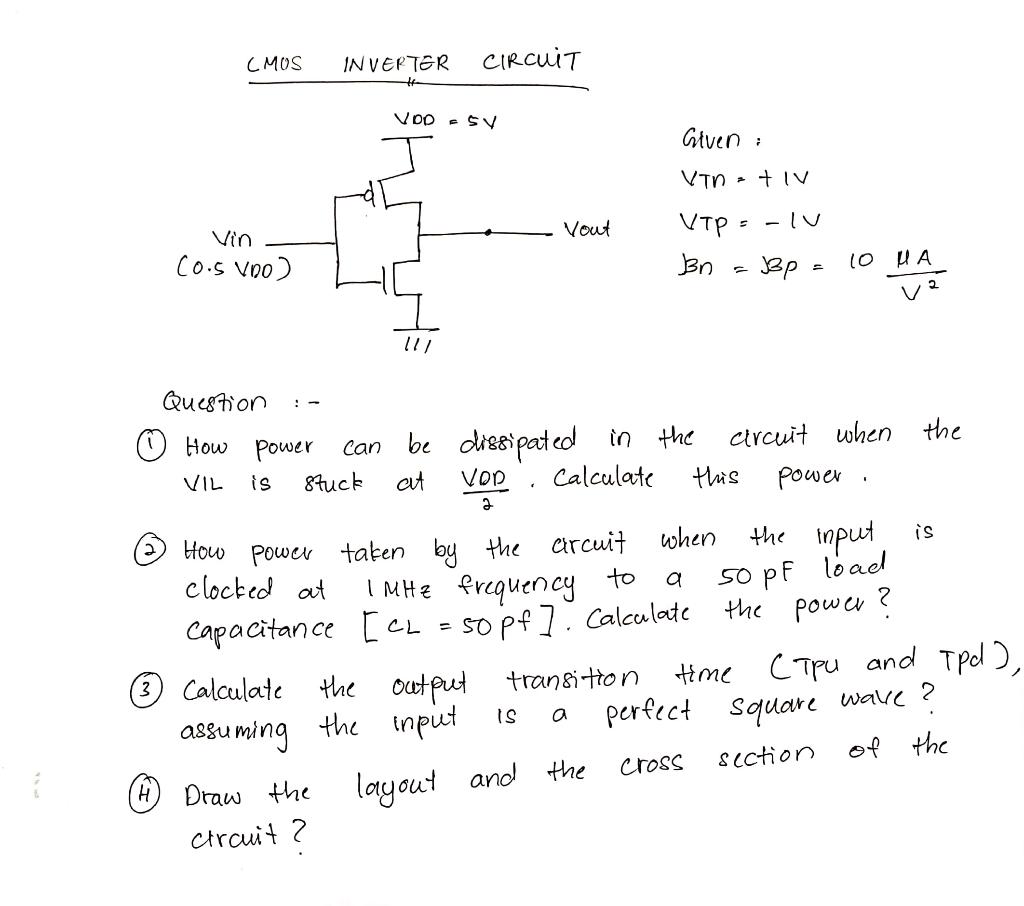 CMOS INVERTER CIRCUIT
VDD = 5V
Given :
VTn = + 1V
VTP = - 1V
βn = βp = 10 μA
V²
Vin
(0.5 VDD)
Vout
Question :-
① How power can be dissipated in the circuit when the
VIL is stuck at VDD . Calculate this power .
2
② How power taken by the circuit when the input is
clocked at 1 MHz frequency to a 50 pF load
capacitance [ CL = 50 pf ]. Calculate the power ?
③ Calculate the output transition time ( TPU and TPd ),
assuming the input is a perfect square wave ?
④ Draw the layout and the cross section of the
circuit ?